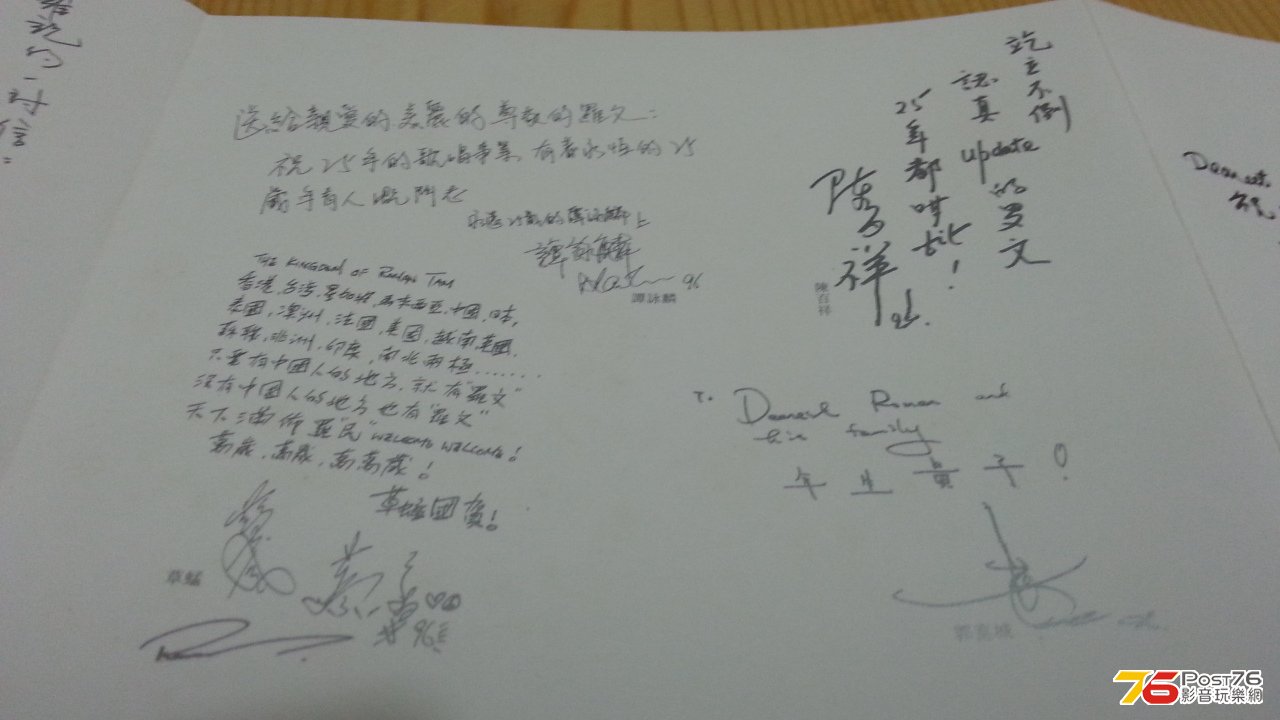 送給親愛的美麗的尊敬的羅文：
祝25年的歌唱事業，有着永恒的25
歲年青人嘅鬥志
永遠25歲的譚詠麟上
譚詠麟
96
譚詠麟
THE KINGDOM OF ROMAN TAM
香港,台湾,星加坡,馬来西亞,中國,日本,
泰國,澳洲,法國,美國,越南,英國,
菲洲,印度,南北兩極.......
只要有中國人的地方,就有"羅文"
没有中國人的地方也有"羅文"
天下满佈羅"民" WELCOME WELCOME!
萬歲,萬歲,萬萬歲!
草蜢
96
屹立不倒
認真 update 的罗文
25年都咁 fit!
陳百祥
96.
陳百祥
To Dearest Roman and
his family
年生貴子!
郭富城
Dearest
祝
76 Post76
影音玩樂網